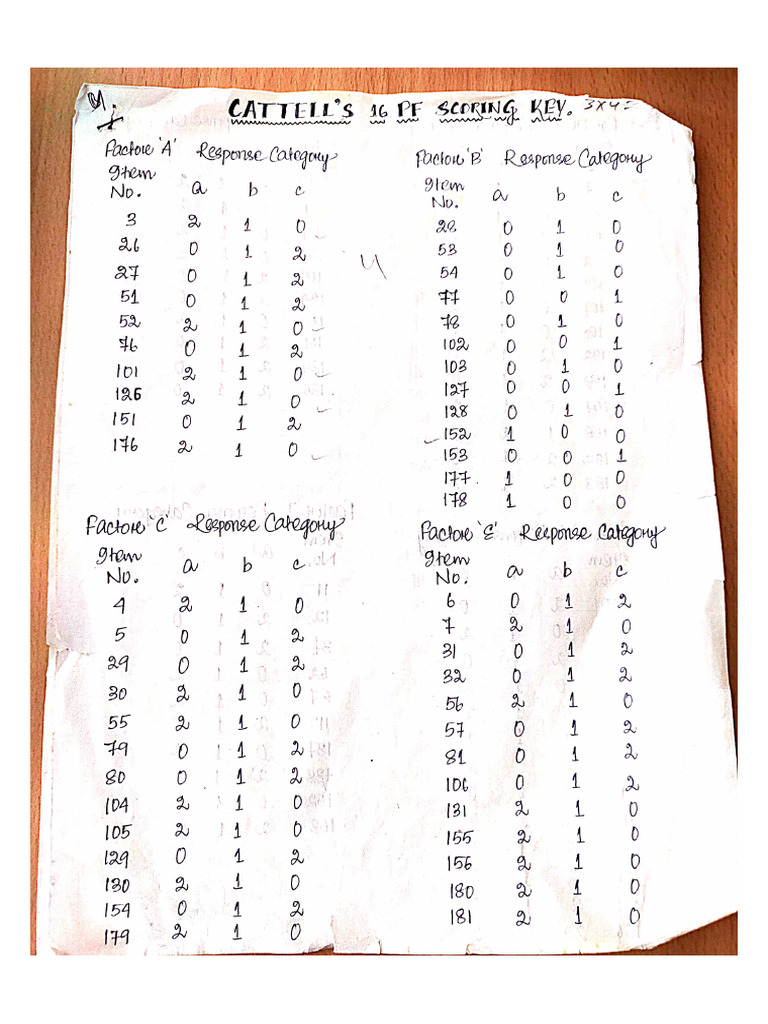 M.
CATTELL'S 16 PF SCORING KEY. 3x4=
Factore 'A' Response Category
Item No. a b c
3 2 1 0
26 0 1 2
27 0 1 2
51 0 1 2
52 2 1 0
76 0 1 2
101 2 1 0
126 2 1 0
151 0 1 2
176 2 1 0
Factore 'B' Response Category
Item No. a b c
28 0 1 0
53 0 1 0
54 0 1 0
77 0 0 1
78 0 1 0
102 0 0 1
103 0 1 0
127 0 0 1
128 0 1 0
152 1 0 0
153 0 0 1
177 1 0 0
178 1 0 0
Factore 'C' Response Category
Item No. a b c
4 2 1 0
5 0 1 2
29 0 1 2
30 2 1 0
55 2 1 0
79 0 1 2
80 0 1 2
104 2 1 0
105 2 1 0
129 0 1 2
130 2 1 0
154 0 1 2
179 2 1 0
Factore 'E' Response Category
Item No. a b c
6 0 1 2
7 2 1 0
31 0 1 2
32 0 1 2
56 2 1 0
57 0 1 2
81 0 1 2
106 0 1 2
131 2 1 0
155 2 1 0
156 2 1 0
180 2 1 0
181 2 1 0